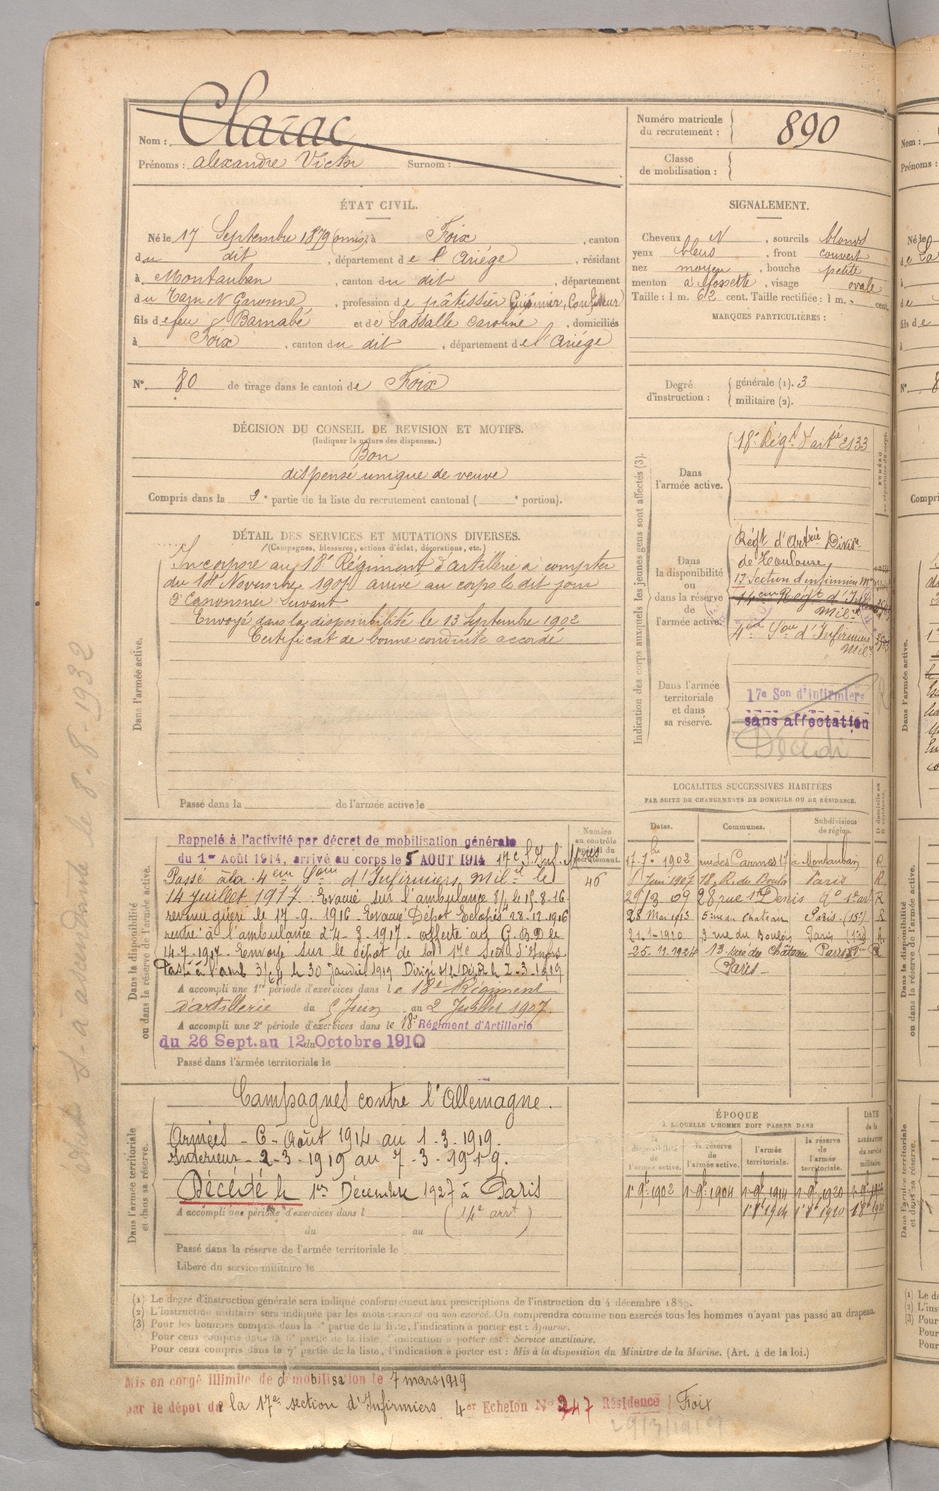 Nom : Clarac
Prénoms : alexandre Victor Surnom :
Numéro matricule du recrutement : 890
Classe de mobilisation :
ÉTAT CIVIL.
Né le 17 Septembre 1879 (omis) à Foix, canton
du dit, département de l'Ariége, résidant
à Montauban, canton du dit, département
du Tarn et Garonne, profession de pâtissier Cuisinier, Confiseur
fils de feu Barnabé et de Lassalle Caroline, domiciliés
à Foix, canton du dit, département de l'Ariége
N° 80 de tirage dans le canton de Foix
SIGNALEMENT.
Cheveux N, sourcils blonds
yeux bleus, front couvert
nez moyen, bouche petite
menton à fossette, visage ovale
Taille : 1 m. 62 cent. Taille rectifiée : 1 m. cent.
MARQUES PARTICULIÈRES :
Degré d'instruction : générale (1). 3
militaire (2).
DÉCISION DU CONSEIL DE REVISION ET MOTIFS.
(Indiquer la nature des dispenses.)
Bon
dispensé unique de veuve
Compris dans la partie de la liste du recrutement cantonal ( portion).
DÉTAIL DES SERVICES ET MUTATIONS DIVERSES.
(Campagnes, blessures, actions d'éclat, décorations, etc.)
Dans l'armée active.
Incorporé au 18e Régiment d'artillerie à compter
du Novembre arrivé au corps le dit jour
2e Canonnier Servant
Envoyé dans la disponibilité le 13 Septembre 1902
Certificat de bonne conduite accordé
Passé dans la de l'armée active le
Indication des corps auxquels les jeunes gens sont affectés (3).
Dans l'armée active.
18e Régt d'artie 2133
Dans la disponibilité ou dans la réserve de l'armée active.
Régt d'Artrie Divre
de Toulouse
17 Section d'infirmiers
4eme Son d'Infirmiers
Milre
Dans l'armée territoriale et dans sa réserve.
17e Son d'infirmiers
sans affectation
Décédé
Dans la disponibilité ou dans la réserve de l'armée active.
Numéro au contrôle du recrutement.
46
Rappelé à l'activité par décret de mobilisation générale
du 1er Août 1914, arrivé au corps le 5 AOUT 1914 17e S. Inf.
Passé à la 4eme Son d'Infirmiers Milre le
14 juillet 1917. Evacué sur l'ambulance 8/4 le 15-8-16
revenu guéri le 17-9-1916 Evacué Dépôt Eclopés 28-12-1916
rentré à l'ambulance 24-8-1917. affecté au G.B.D. le
4-7-1917. Envoyé sur le dépôt de la 17e Secton d'Infrs
Passé à l'amb. 3/64 le 30 Janvier 1919 Dirigé s/ le Dépôt le 2-3-1919
A accompli une 1re période d'exercices dans le 18e Régiment
d'artillerie du 5 Juin au 2 Juillet 1907
A accompli une 2e période d'exercices dans le 18e Régiment d'Artillerie
du 26 Sept. au 12 Octobre 1910
Passé dans l'armée territoriale le
LOCALITÉS SUCCESSIVES HABITÉES
PAR SUITE DE CHANGEMENTS DE DOMICILE OU DE RÉSIDENCE.
Dates. Communes. Subdivisions de région.
1902 rue des Carmes 17 à Montauban R
Juin 1907 18, R. du Bouloi Paris R
29/3 09 28 rue St Denis R
28 Mai 1913 5 rue du Chateau Paris (15e)
21-1-1920 3 rue du Bouloi Paris R
25-11-1924 13 rue du Château Paris R
Paris
Dans l'armée territoriale et dans sa réserve.
Campagnes contre l'Allemagne.
Armées - C - Août 1914 au 1-3-1919.
Intérieur - 2-3-1919 au 7-3-1919.
Décédé le 1er Décembre 1927 à Paris
(14e arrt)
A accompli une période d'exercices dans l
du au
Passé dans la réserve de l'armée territoriale le
Libéré du service militaire le
ÉPOQUE
À LAQUELLE L'HOMME DOIT PASSER DANS
la disponibilité de l'armée active. la réserve de l'armée active. l'armée territoriale. la réserve de l'armée territoriale. DATE de la libération du service militaire.
1er 9bre 1902 1er 9bre 1904 1er 9bre 1914 1er 9bre 1920
(1) Le degré d'instruction générale sera indiqué conformément aux prescriptions de l'instruction du 4 décembre 1889.
(2) L'instruction militaire sera indiquée par les mots exercé ou non exercé. On comprendra comme non exercés tous les hommes n'ayant pas passé au drapeau.
(3) Pour les hommes compris dans la partie de la liste, l'indication à porter est : Ajourné.
Pour ceux compris dans la partie de la liste, l'indication à porter est : Service auxiliaire.
Pour ceux compris dans la 7e partie de la liste, l'indication à porter est : Mis à la disposition du Ministre de la Marine. (Art. 4 de la loi.)
Mis en congé illimité de démobilisation le 7 mars 1919
par le dépôt de la 17e section d'Infirmiers 4er Echelon N° 247 Résidence Foix
29/3/1919